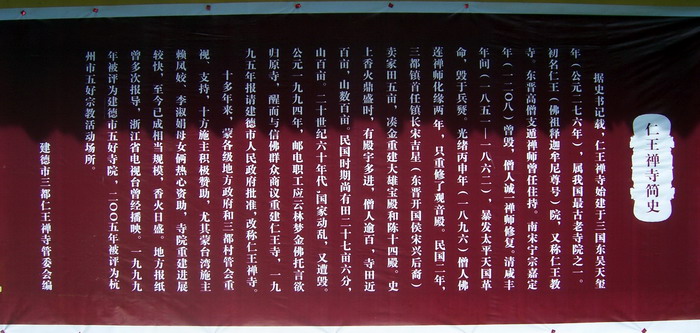 仁王禅寺简史
据史书记载，仁王禅寺始建于三国东吴天玺
年（公元二七六年），属我国最古老寺院之一。
初名仁王（佛祖释迦牟尼尊号）院，又称仁王教
寺。东晋高僧支遁禅师曾任住持。南宋宁宗嘉定
年（一二〇八）曾毁，僧人诚一禅师修复。清咸丰
年间（一八五一—一八六二），暴发太平天国革
命，毁于兵燹。光绪丙申年（一八九六）僧人佛
莲禅师化缘两年，只重修了观音殿。民国二年，
三都镇首任镇长宋吉星（东晋开国侯宋兴后裔）
卖家田五亩，凑金重建大雄宝殿和陈十四殿。史
上香火鼎盛时，有殿宇多进，僧人逾百，寺田近
百亩，山数百亩。民国时期尚有田二十七亩六分，
山百亩。二十世纪六十年代，国家动乱，又遭毁。
公元一九九四年，邮电职工应云林梦金佛托言欲
归原寺，醒而与信佛群众商议重建仁王寺，一九
九五年报请建德市人民政府批准，改称仁王禅寺。
十多年来，蒙各级地方政府和三都村管会重
视、支持，十方施主积极赞助，尤其蒙台湾施主
赖凤姣、李淑娟母女俩热心资助，寺院重建进展
较快，至今已成相当规模，香火日盛。地方报纸
曾多次报导，浙江省电视台曾经播映，一九九九
年被评为建德市五好寺院，二〇〇五年被评为杭
州市五好宗教活动场所。
建德市三都仁王禅寺管委会编